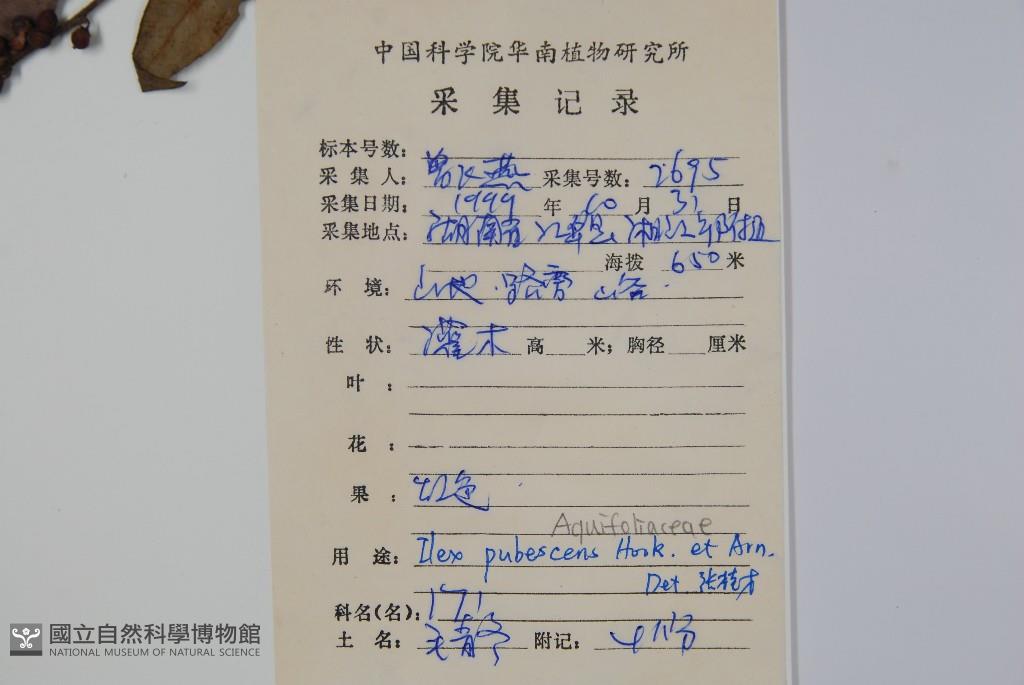 中国科学院华南植物研究所
采集记录
标本号数：
采集人： 曾飞燕 采集号数： 2695
采集日期： 1999 年 10 月 31 日
采集地点： 湖南省 江华县 湘江乡
海拨 650 米
环境： 山地 路旁 山谷
性状： 灌木 高 米；胸径 厘米
叶：
花：
果： 红色
Aquifoliaceae
用途： Ilex pubescens Hook. et Arn.
Det.
科名（名）： 171
土名： 毛青 附记： 份
國立自然科學博物館
NATIONAL MUSEUM OF NATURAL SCIENCE